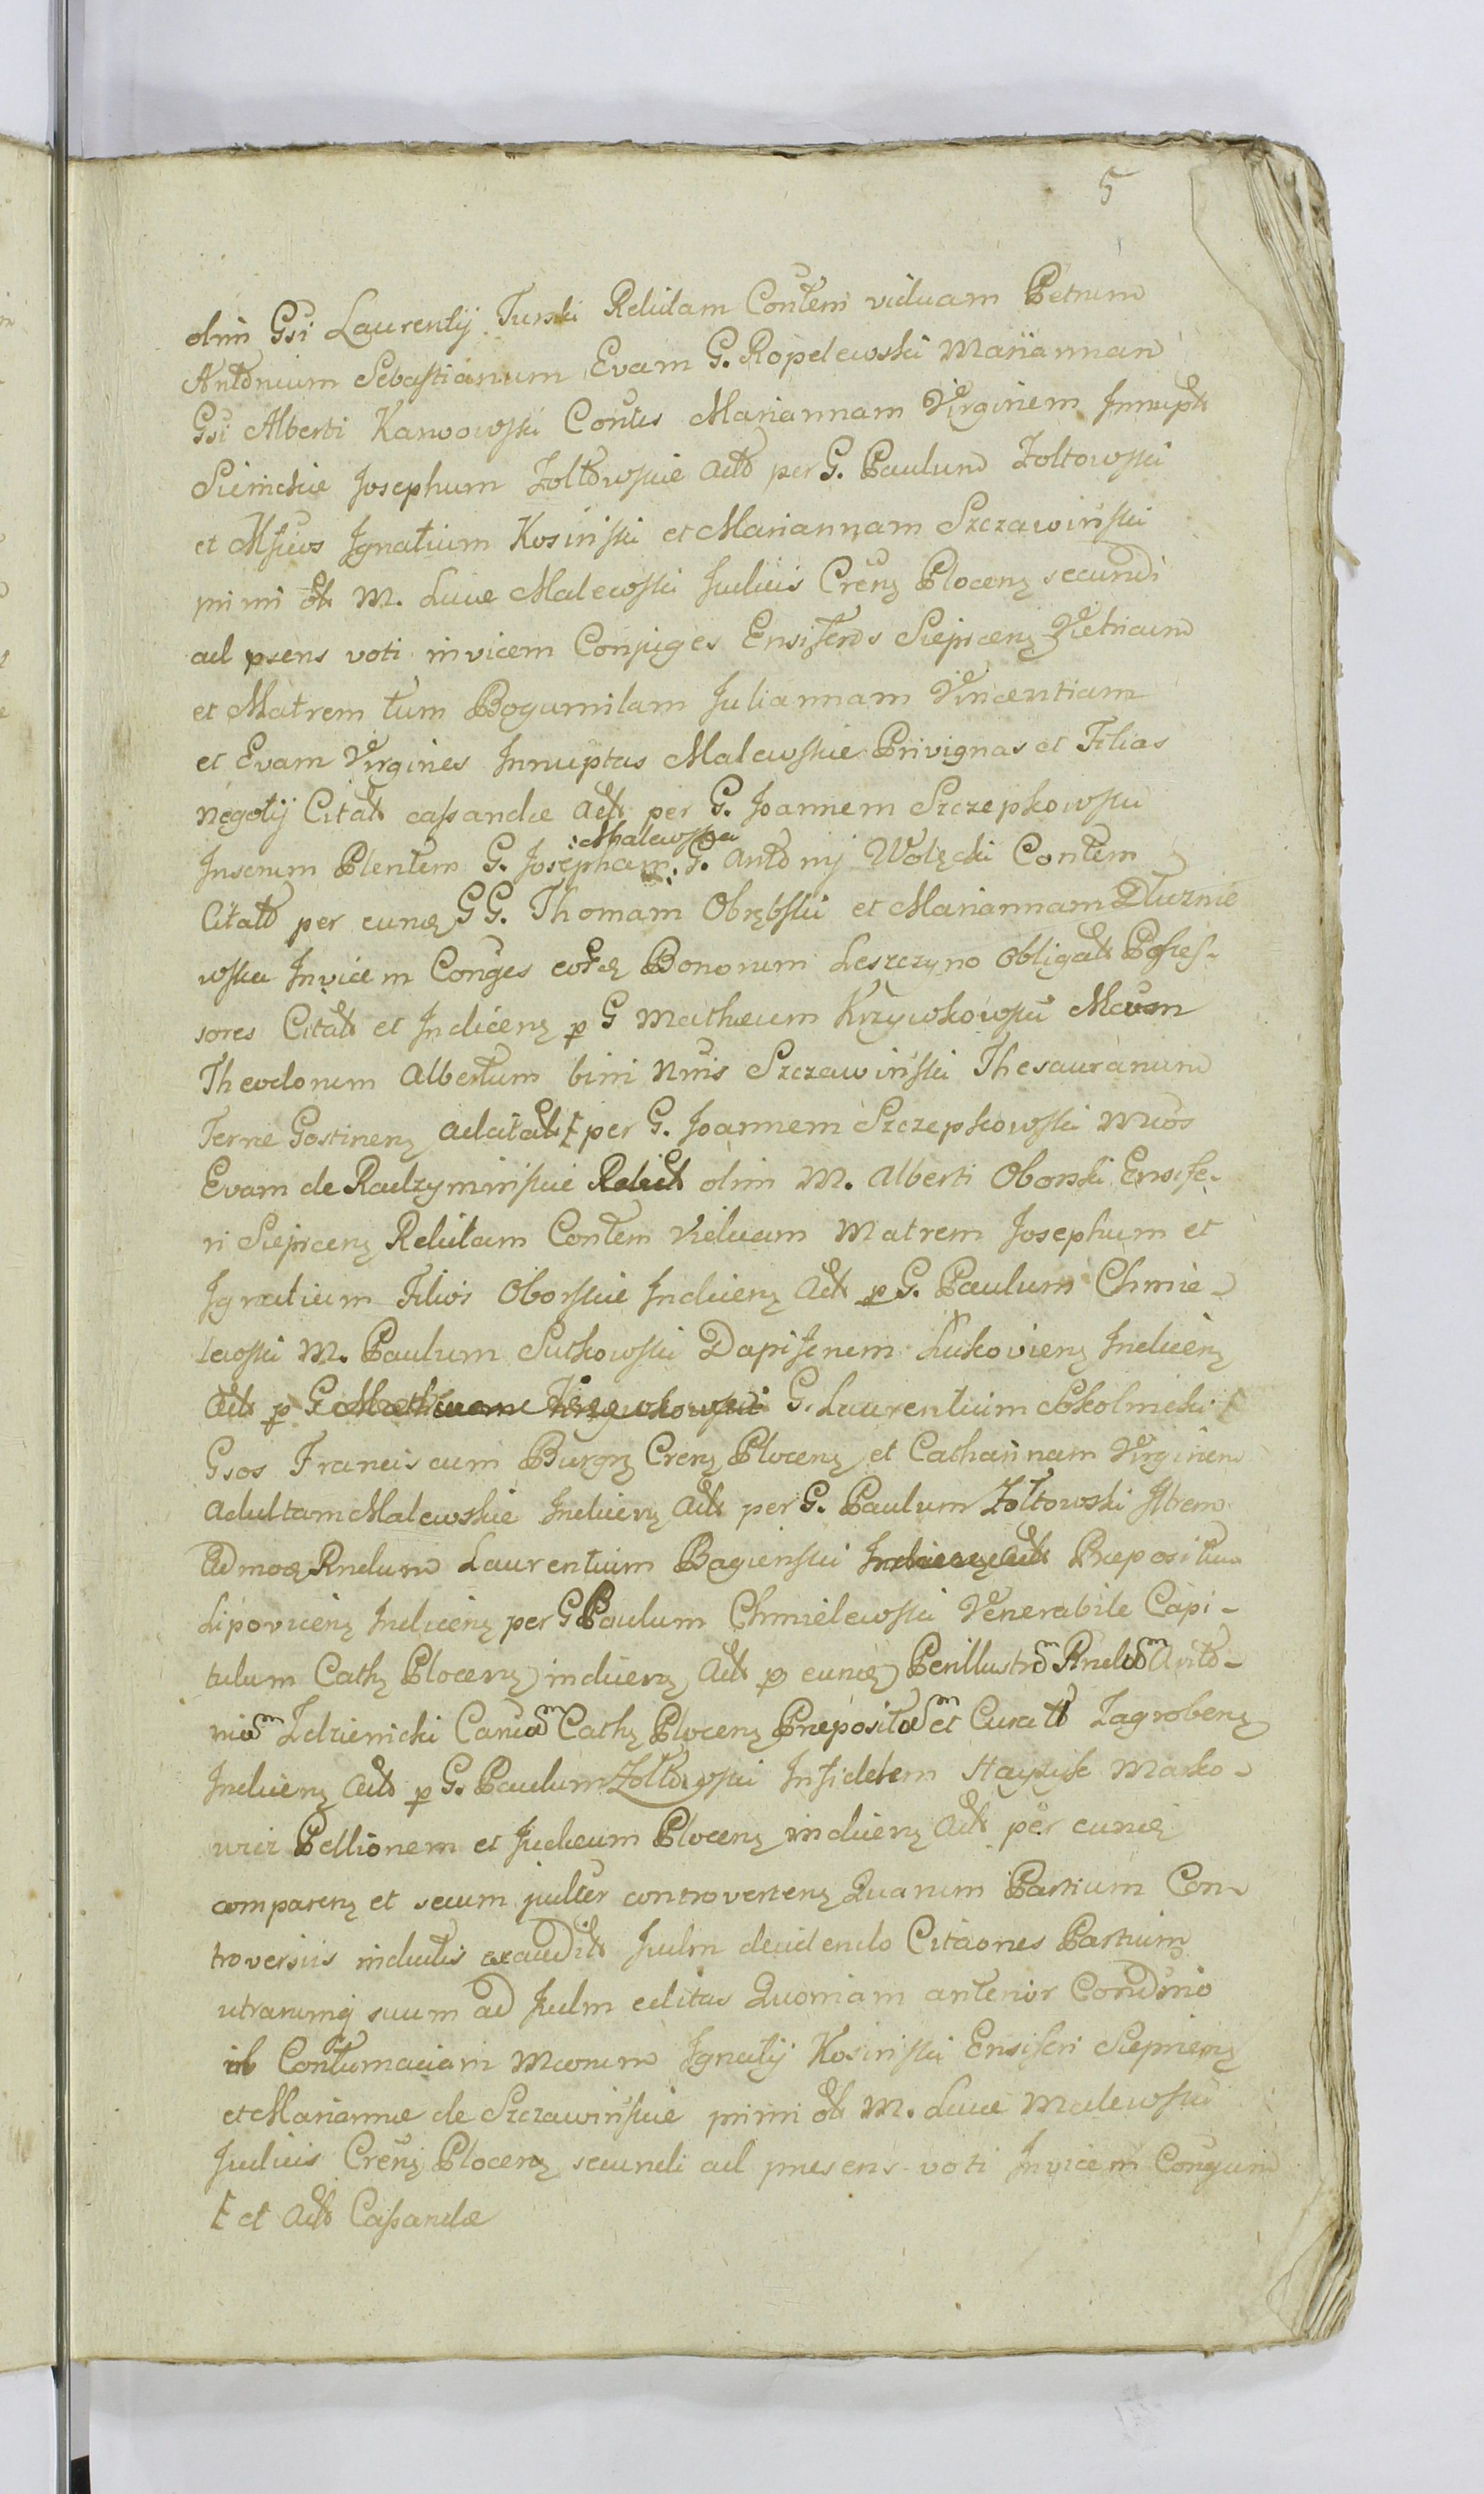 5
olim Gsi Laurentij Turski Relictam Contem viduam Petrum
Antonium Sebastianum Evam G. Ropelewski Mariannam
Gsi Alberti Karwowski Contis Mariannam Virginem Innupt
Siemickie Josephum Zoltowskie Act per G. Paulum Zoltowski
et Mficos Ignatium Kosinski et Mariannam Szczawinski
primi ol M. Lucæ Malewski Judicis Cren Plocen secundi
ad psens voti invicem Conjuges Ensiferos Sieprcen Vietricum
et Matrem tum Bogumilam Juliannam Vincentiam
et Evam Virgines Innuptas Malewskie Privignas et Filias
negotij Citat cassandæ Act per G. Joannem Szczepkowski
:Malewska
Inserum Plentem G. Josepham: G. Antonij Wolęcki Contem
Citat per eund GG. Thomam Obrębski et Mariannam Dłuznie
wska Invicem Conges eosd Bonorum Leszczyno Obligat Posses-
sores Citat et Indicen p G Mathæum Krzywkowski Mcum
Theodorum Albertum bini Nnis Szczawinski Thesaurarium
Terræ Gostinen adcitat per G. Joannem Szczepkowski Mcos
Evam de Radzyminskie Relict olim M. Alberti Oborski Ensife-
ri Sieprcen Relictam Contem Viduam Matrem Josephum et
Ignatium Filios Oborskie Inducen Act p G. Paulum Chmie-
lewski M. Paulum Sutkowski Dapiferum Lukovien Inducen
Act p G Mathæum Krzywkowski G. Laurentium Skolnicki
Gsos Franciscum Burgr Cren Plocen et Catharinam Virginem
Adultam Malewskie Inducen Act per G. Paulum Zoltowski Item
Admod Rndum Laurentium Bagienski Inducen Act Præpositum
Lipovicen Inducen per G Paulum Chmielewski Venerabile Capi-
tulum Cath Plocen inducen Act p eund Perillustr Rndum Anto-
nium Zdzienicki Canucm Cath Plocen Præpositum et Curat Zagroben
Inducen Act p G. Paulum Zoltowski Infidelem Hayzyk Marko-
wicz Pellionem et Judæum Plocen inducen Act per eund
comparen et secum julter controverten Quarum Partium Con-
troversiis inductis exaudit Judm decidendo Citaones Partium
utrarumq suum ad Judm editas Quoniam anterior Condmno
ob Contumaciam Mcorum Ignatij Kosinski Ensiferi Siepricen
et Mariannæ de Szczawinskie primi ol M. Lucæ Malewski
Judicis Cren Plocen secundi ad præsens voti Invicem Congum
et Act Cassandæ